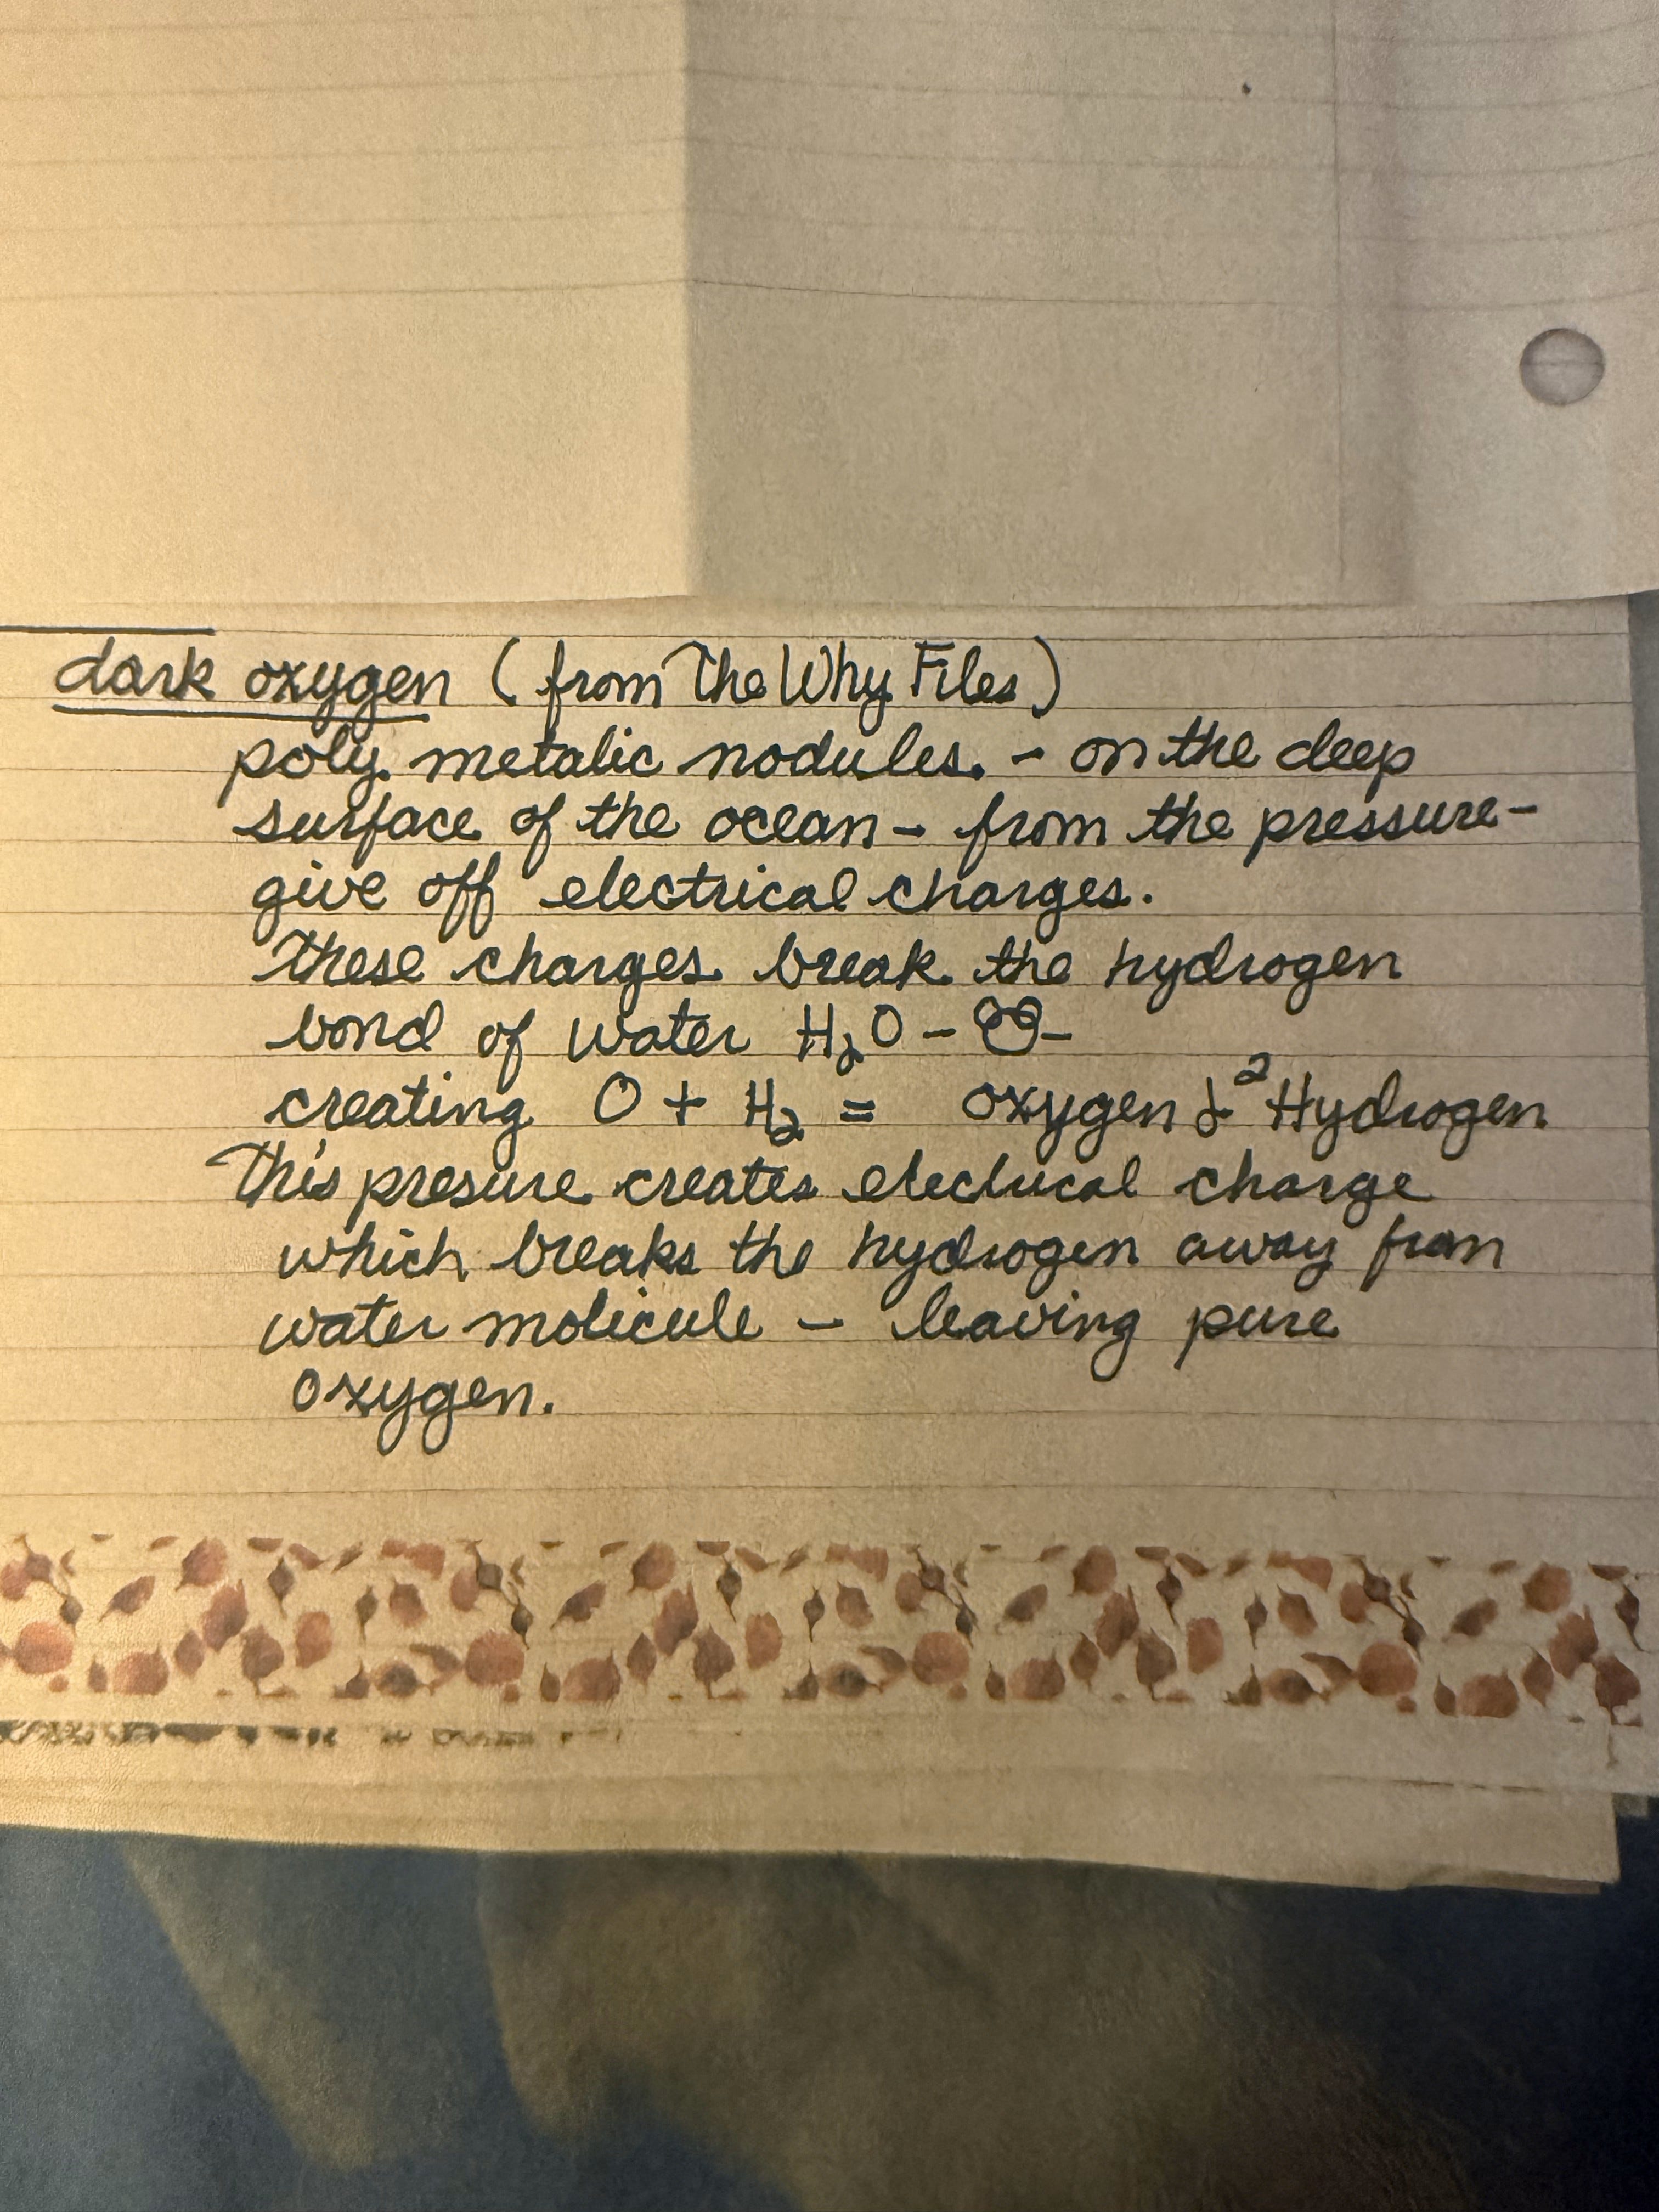 dark oxygen (from The Why Files)
poly. metalic nodules. - on the deep
surface of the ocean - from the pressure -
give off electrical charges.
These charges break the hydrogen
bond of water H₂O - -
creating O + H₂ = oxygen & ² Hydrogen
This presure creates electrical charge
which breaks the hydrogen away from
water molicule - leaving pure
oxygen.